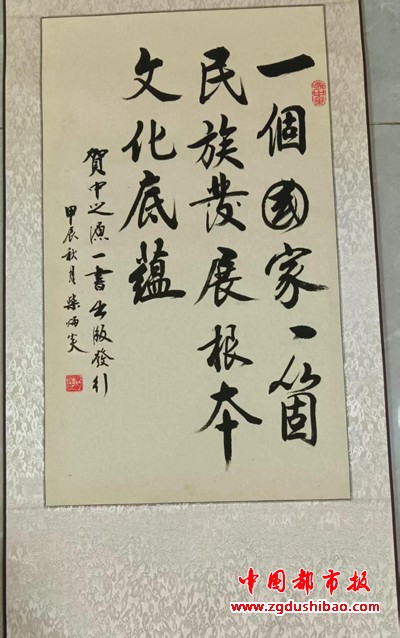 一個國家一箇
民族發展根本
文化底蘊
賀中之源一書出版發行
甲辰秋月柴炳炎
中国都市报
www.zgdushibao.com